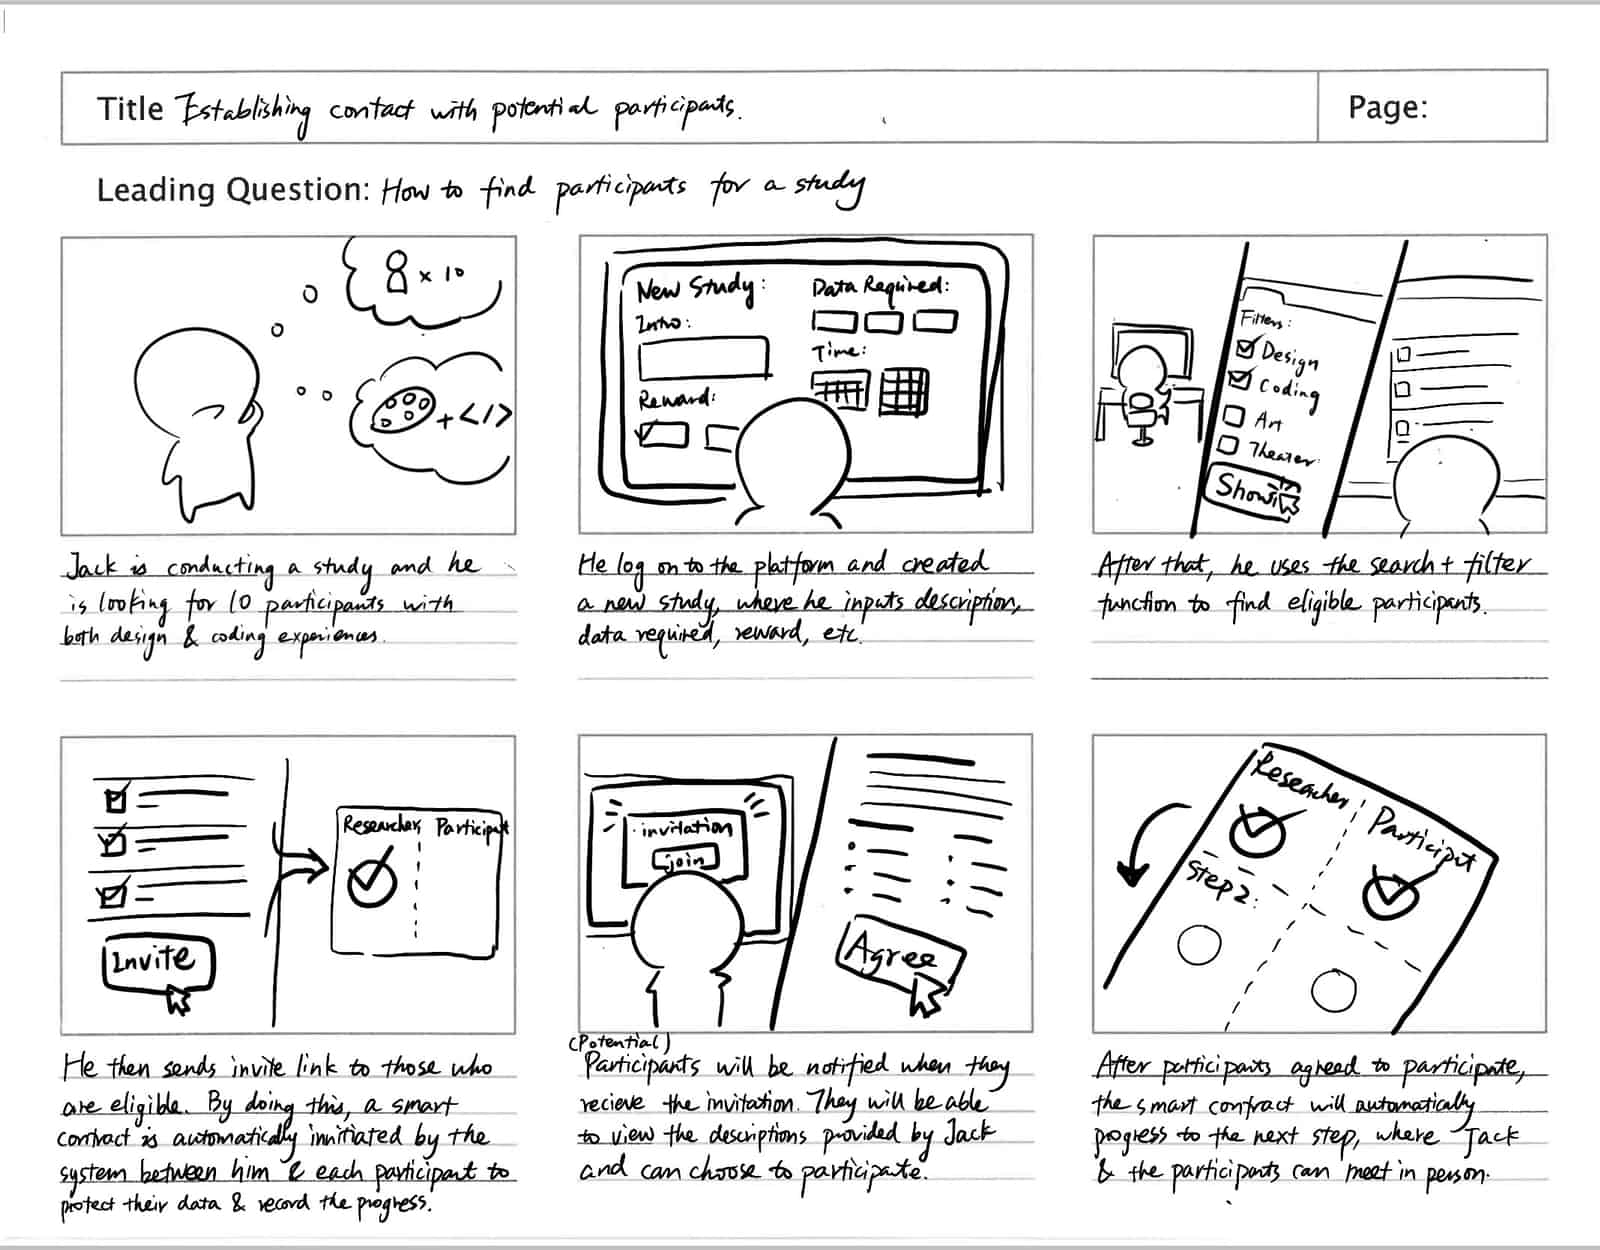 Title Establishing contact with potential participants.
Page:
Leading Question: How to find participants for a study
x 10
+ </>
Jack is conducting a study and he
is looking for 10 participants with
both design & coding experiences.
New Study:
Intro:
Reward:
Data Required:
Time:
He log on to the platform and created
a new study, where he inputs description,
data required, reward, etc.
Filters:
Design
Coding
Art
Theater
Show
After that, he uses the search + filter
function to find eligible participants.
Invite
Researcher Participant
He then sends invite link to those who
are eligible. By doing this, a smart
contract is automatically innitiated by the
system between him & each participant to
protect their data & record the progress.
invitation
join
Agree
(Potential)
Participants will be notified when they
recieve the invitation. They will be able
to view the descriptions provided by Jack
and can choose to participate.
Researcher Participat
Step 2:
After participants agreed to participate,
the smart contract will automatically
progress to the next step, where Jack
& the participants can meet in person.